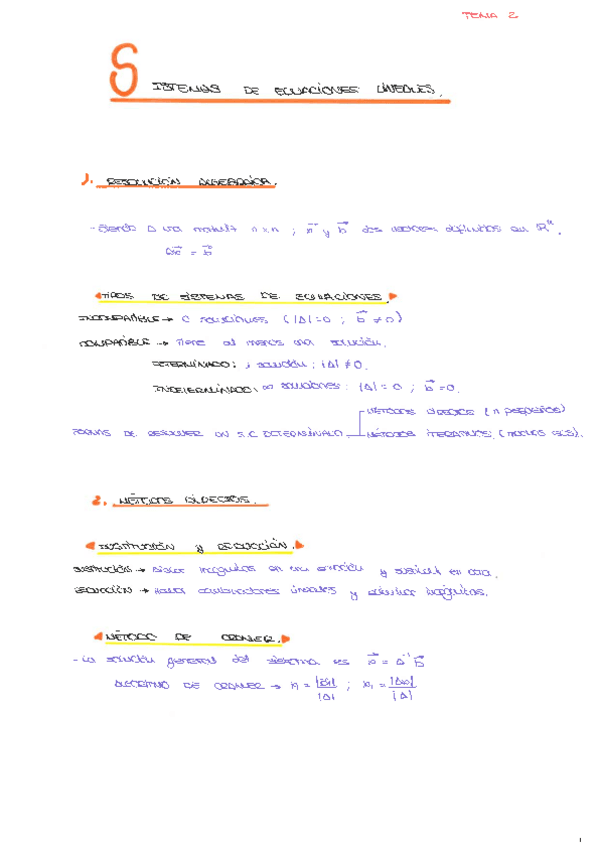 TEMA 2
SISTEMAS DE ECUACIONES LINEALES.
1. RESOLUCIÓN ALGEBRAICA.
- Siendo A una matriz n x n ; x⃗ y b⃗ dos vectores definidos en ℝⁿ.
Ax⃗ = b⃗
TIPOS DE SISTEMAS DE ECUACIONES
INCOMPATIBLE → 0 soluciones (|A|=0 ; b⃗ ≠ 0)
COMPATIBLE → Tiene al menos una solución.
DETERMINADO: 1 solución ; |A| ≠ 0.
INDETERMINADO: ∞ soluciones ; |A| = 0 ; b⃗ = 0.
MÉTODOS DIRECTOS (n pequeños)
FORMAS DE RESOLVER UN S.C. DETERMINADO
MÉTODOS ITERATIVOS.
2. MÉTODOS DIRECTOS.
SUSTITUCIÓN y REDUCCIÓN.
SUSTITUCIÓN → Aislar incógnitas en una ecuación y sustituir en otra.
REDUCCIÓN → Hacer combinaciones lineales y eliminar incógnitas.
MÉTODO DE CRAMER.
- La solución general del sistema es x⃗ = A⁻¹ b⃗
ALGORITMO DE CRAMER →